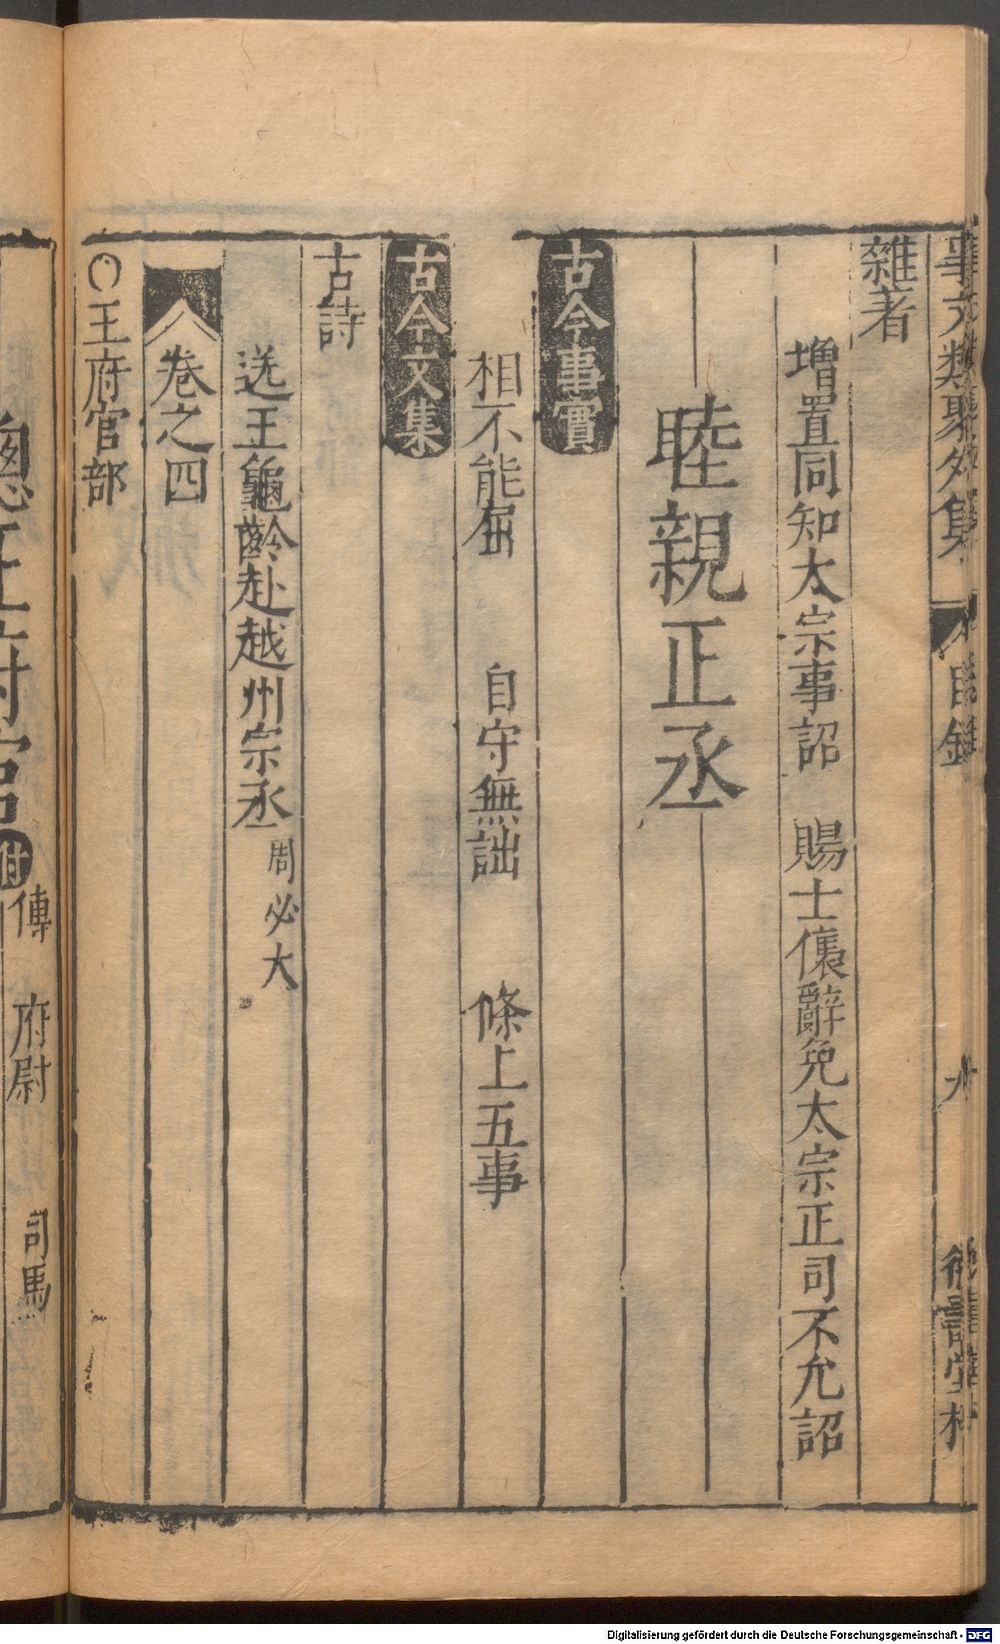 事文類聚外集 目錄 九 德壽堂梓
雜著
增置同知太宗事詔 賜士㒟辭免太宗正司不允詔
睦親正丞
古今事實
相不能屈 自守無詘 條上五事
古今文集
古詩
送王龜齡赴越州宗丞 周必大
卷之四
○王府官部
總王府官 附 傅 府尉 司馬
Digitalisierung gefördert durch die Deutsche Forschungsgemeinschaft - DFG